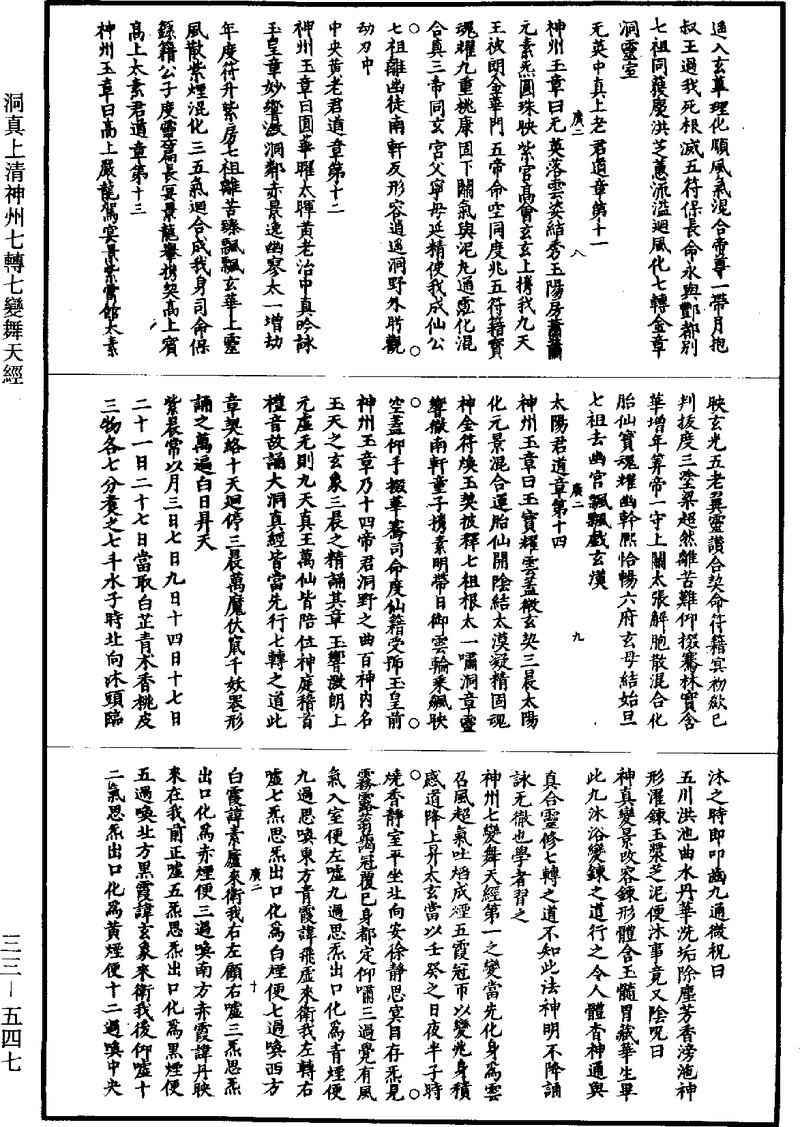 遥入玄幕理化順風氣混合帝尊一帶月抱
叔王過我死根滅五符保長命永與酆都別
七祖同獲慶洪芝蕙流溢迴風化七轉金章
洞靈室
无英中真上老君道章第十一
廣二 八
神州玉章曰无英落雲姿結秀玉陽房蕭蕭
元素炁圓珠映紫宮高會玄玄上攜我九天
王被朗金華門五帝命空同度兆五符籍寶
魂耀九重桃康固下關氣與泥丸通靈化混
合真三帝同玄宮父寧母延精使我成仙公
七祖離幽徒南軒反形容逍遥洞野外盻觀
劫刃中
中央黄老君道章第十二
神州玉章曰圓華曜太暉黄老治中真吟詠
玉皇章妙響激洞鄰赤景逸幽寥太一增劫
年度符升紫房七祖離苦臻飄飄玄華上靈
風散紫煙混化三五氣迴合成我身司命保
錄籍公子度靈篇長宴景龍轝攜契高上賓
高上太素君道章第十三
神州玉章曰高上嚴龍駕宴景紫霄館太素
映玄光五老翼靈讃合契命符籍冥初欻已
判拔度三塗梁超然離苦難仰掇騫林實含
華增年筭帝一守上關太張解胞散混合化
胎仙寶魂耀幽幹熙怡暢六府玄母結始旦
七祖去幽宮飄飄戲玄漢
廣二 九
太陽君道章第十四
神州玉章曰玉寶耀雲蓋徽玄契三晨太陽
化元景混合運胎仙開陰結太漠凝精固魂
神金符煥玉契披釋七祖根太一嘯洞章靈
響徹南軒童子攜素明帶日御雲輪乘飆映
空蓋仰手掇華騫司命度仙籍受號玉皇前
神州玉章乃十四帝君洞野之曲百神内名
玉天之玄象三晨之精誦其章玉響激朗上
元虛无則九天真王萬仙皆陪位神庭稽首
禮音故誦大洞真經皆當先行七轉之道此
章契絡十天迴停三晨萬魔伏竄千妖喪形
誦之萬遍白日昇天
紫晨常以月三日七日九日十四日十七日
二十一日二十七日當取白芷青木香桃皮
三物各七分煑之七斗水子時北向沐頭臨
沐之時即叩齒九通微祝曰
五川洪池曲水丹華洗垢除塵芳香滂池神
形濯鍊玉漿芝泥便沐事竟又陰呪曰
神真變景改容鍊形體含玉髓胃藏華生畢
此九沐浴變鍊之道行之令人體香神通與
真合靈修七轉之道不知此法神明不降誦
詠无徹也學者習之
神州七變舞天經第一之變當先化身爲雲
召風超氣吐焰成煙五霞冠帀以變兆身積
感道降上昇太玄當以壬癸之日夜半子時
燒香靜室平坐北向安徐靜思冥目存炁見
霧露蓊鬱冠覆已身都定仰嘯三過覺有風
氣入室便左嘘九過思炁出口化爲青煙便
九過思唤東方青霞諱飛虛來衛我左轉右
嘘七炁思炁出口化爲白煙便七過唤西方
廣二 十
白霞諱素廬來衛我右左顧右嘘三炁思炁
出口化爲赤煙便三過唤南方赤霞諱丹映
來在我前正嘘五炁思炁出口化爲黑煙便
五過唤北方黑霞諱玄象來衛我後仰嘘十
二氣思炁出口化爲黄煙便十二過唤中央
洞真上清神州七轉七變舞天經
三三－五四七